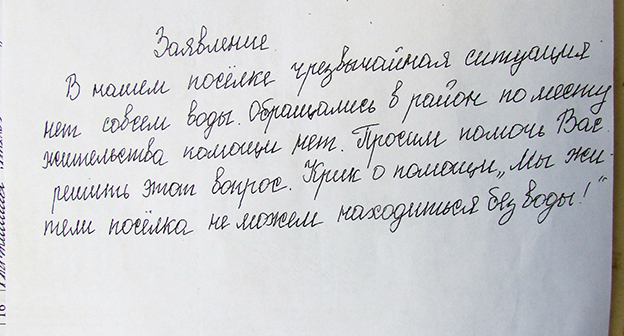 Заявление.
В нашем посёлке чрезвычайная ситуация
нет совсем воды. Обращались в район по месту
жительства помощи нет. Просим помочь Вас
решить этот вопрос. Крик о помощи „Мы жи-
тели посёлка не можем находиться без воды!“
16